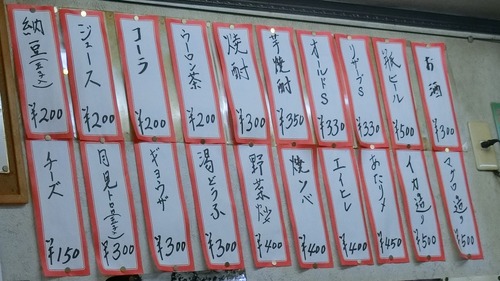 お酒 ¥300
瓶ビール ¥500
リザーブS ¥330
オールドS ¥330
芋焼酎 ¥350
焼酎 ¥300
ウーロン茶 ¥200
コーラ ¥200
ジュース ¥200
納豆(玉子入) ¥200
マグロ造り ¥500
イカ造り ¥500
あたりメ ¥450
エイヒレ ¥400
焼ソバ ¥400
野菜炒 ¥400
湯どうふ ¥300
ギョウザ ¥300
月見トロ ¥300
チーズ ¥150